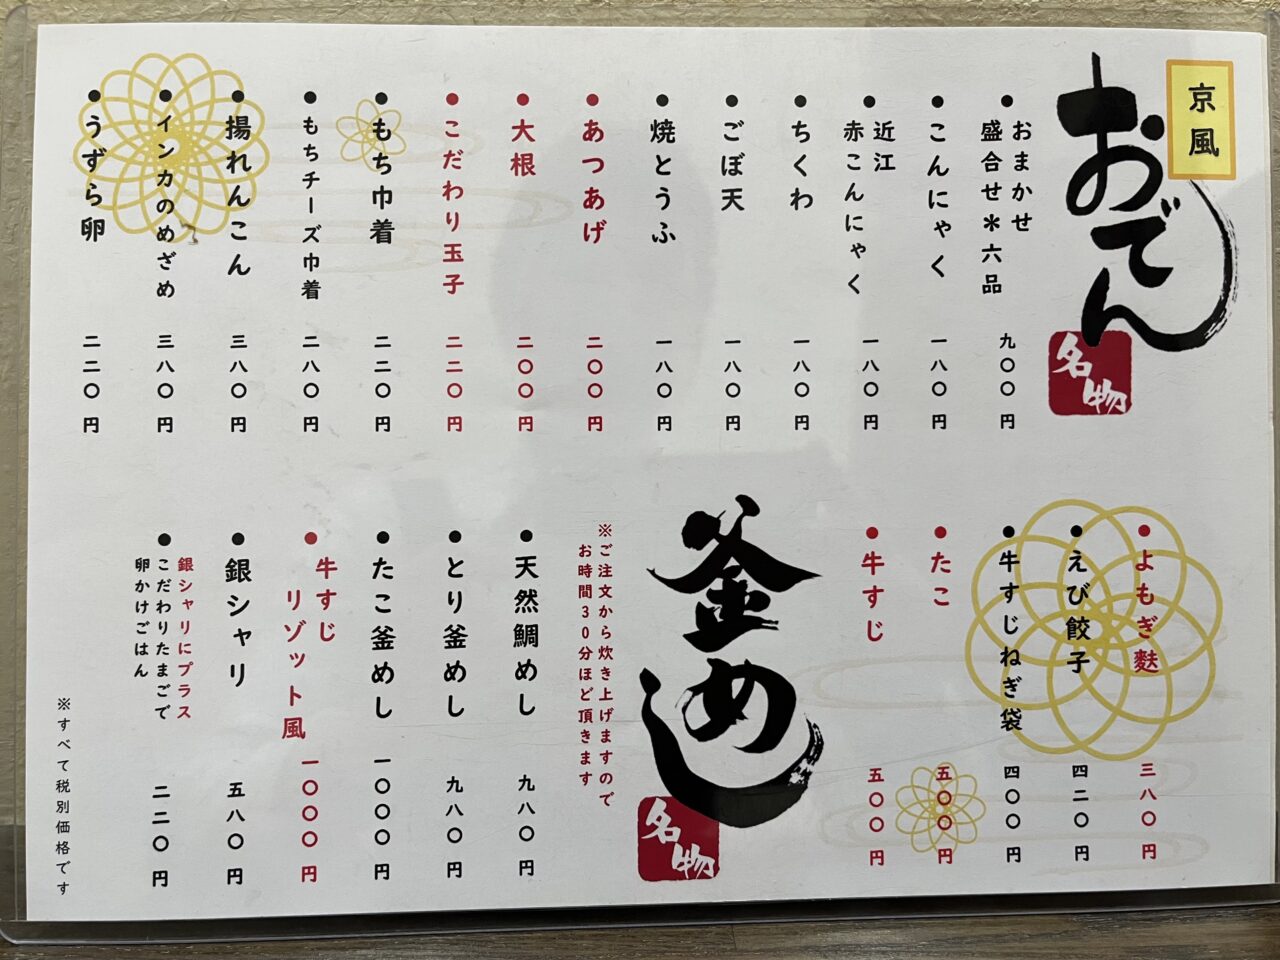 京風
おでん
名物
●おまかせ
盛合せ＊六品 九〇〇円
●こんにゃく 一八〇円
●近江
赤こんにゃく 一八〇円
●ちくわ 一八〇円
●ごぼ天 一八〇円
●焼とうふ 一八〇円
●あつあげ 二〇〇円
●大根 二〇〇円
●こだわり玉子 二二〇円
●もち巾着 二二〇円
●もちチーズ巾着 二八〇円
●揚れんこん 三八〇円
●インカのめざめ 三八〇円
●うずら卵 二二〇円
●よもぎ麩 三八〇円
●えび餃子 四二〇円
●牛すじねぎ袋 四〇〇円
●たこ 五〇〇円
●牛すじ 五〇〇円
釜めし
名物
※ご注文から炊き上げますので
お時間30分ほど頂きます
●天然鯛めし 九八〇円
●とり釜めし 九八〇円
●たこ釜めし 一〇〇〇円
●牛すじ
リゾット風 一〇〇〇円
●銀シャリ 五八〇円
銀シャリにプラス
●こだわりたまごで
卵かけごはん 二二〇円
※すべて税別価格です